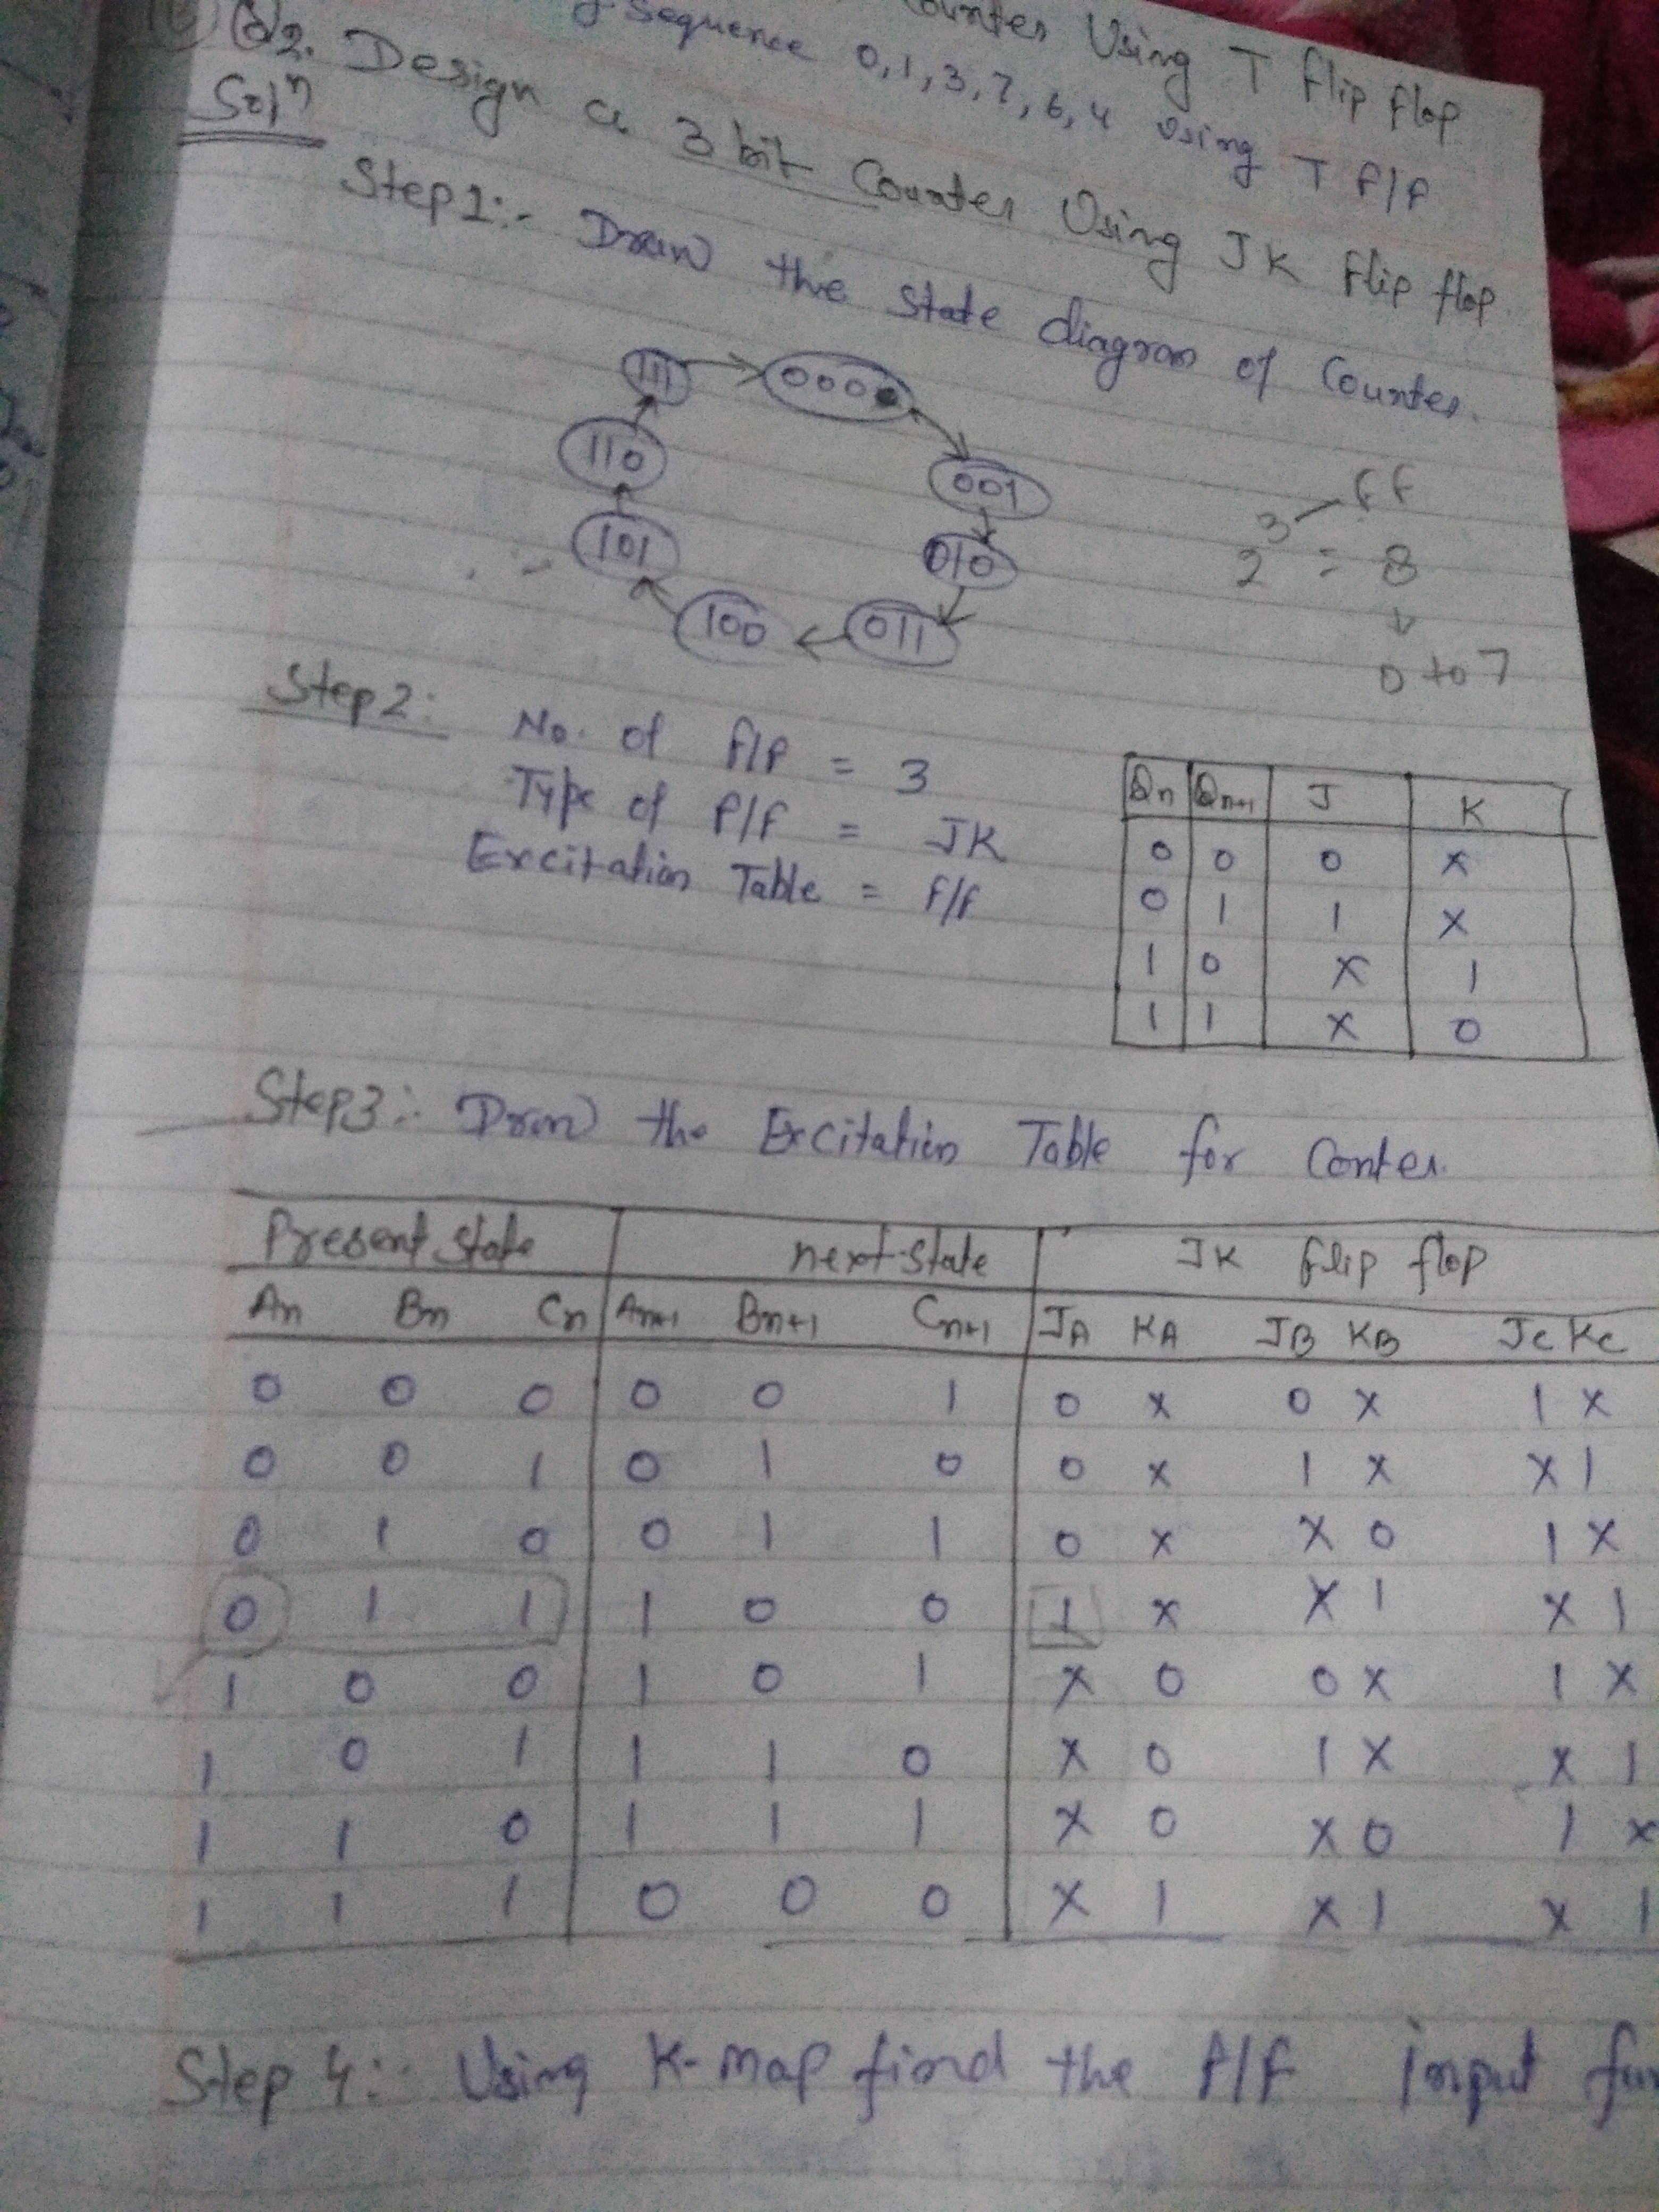 Counter Using T flip flop
g sequence 0,1,3,7,6,4 Using T f/f
Q2. Design a 3 bit Counter Using JK flip flop.
Solⁿ
Step1:- Draw the state diagram of Counter.
111 000
110 001
101 010
100 011
2³ = 8
ff
0 to 7
Step2: No. of f/f = 3
Type of f/f = JK
Excitation Table = f/f
Qn Qn+1 J K
0 0 0 x
0 1 1 x
1 0 x 1
1 1 x 0
Step3:- Draw the Excitation Table for Conter.
Present state next state JK flip flop
An Bn Cn An+1 Bn+1 Cn+1 JA KA JB KB JC KC
0 0 0 0 0 1 0 x 0 x 1 x
0 0 1 0 1 0 0 x 1 x x 1
0 1 0 0 1 1 0 x x 0 1 x
0 1 1 1 0 0 1 x x 1 x 1
1 0 0 1 0 1 x 0 0 x 1 x
1 0 1 1 1 0 x 0 1 x x 1
1 1 0 1 1 1 x 0 x 0 1 x
1 1 1 0 0 0 x 1 x 1 x 1
Step 4:- Using K-map find the f/f input fun